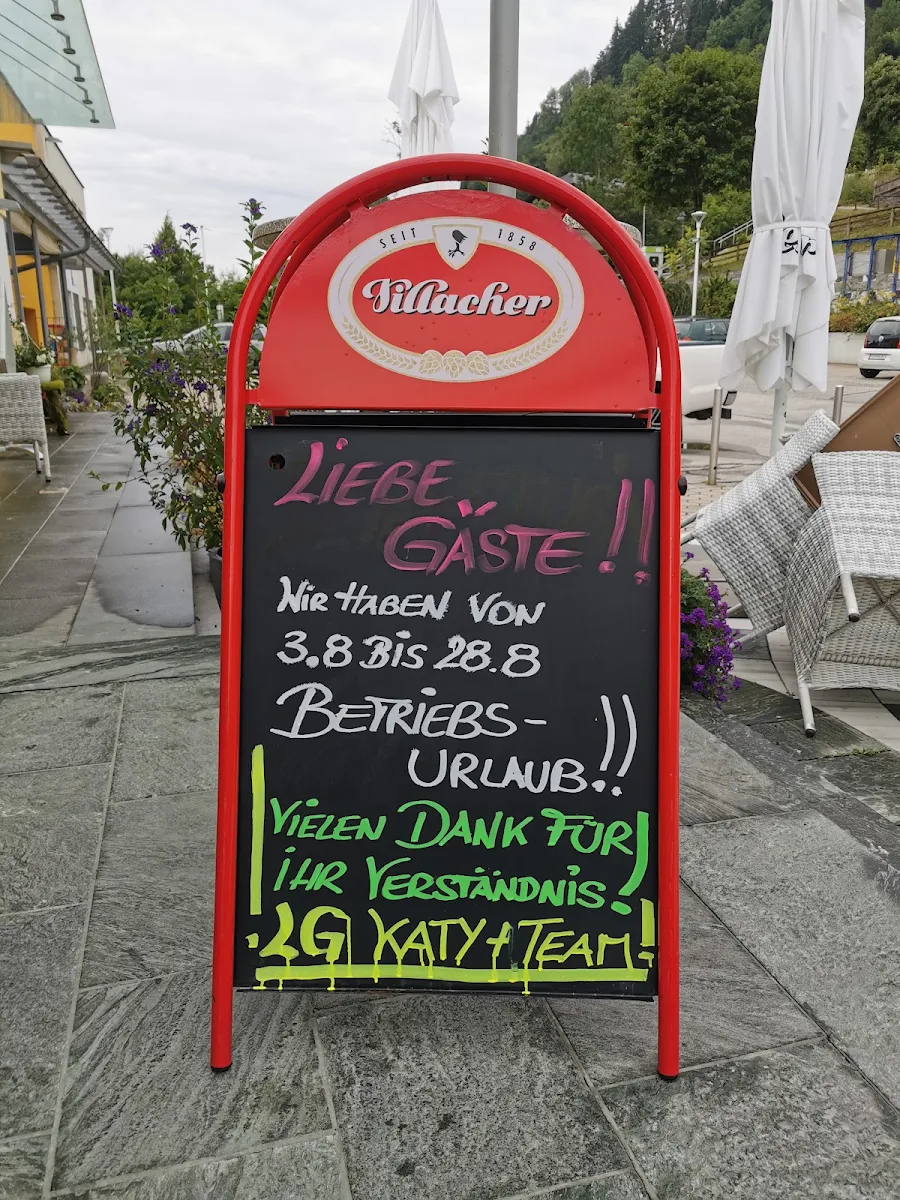 SEIT 1858
Villacher
LIEBE
GÄSTE!!
WIR HABEN VON
3.8 BIS 28.8
BETRIEBS-
URLAUB!!
VIELEN DANK FÜR
IHR VERSTÄNDNIS!
LG KATY + TEAM!